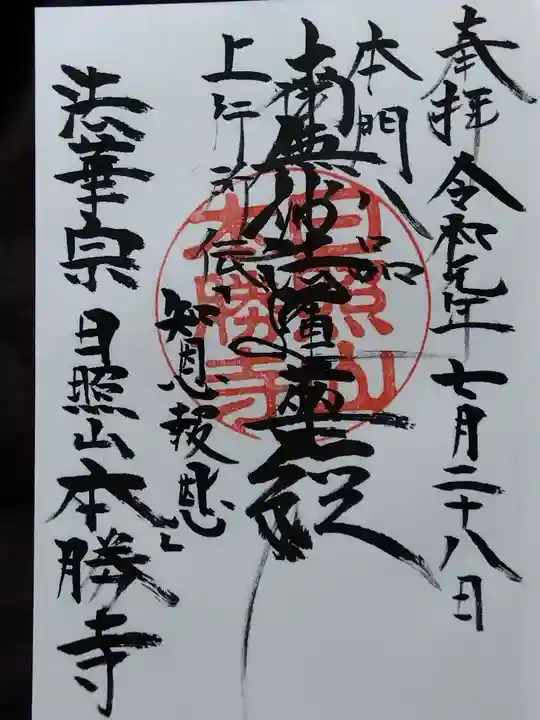 奉拝 令和元年 七月二十八日
本門八品
南無妙法蓮華経
上行所伝
知恩報恩
法華宗 日照山本勝寺
日照山
本勝寺